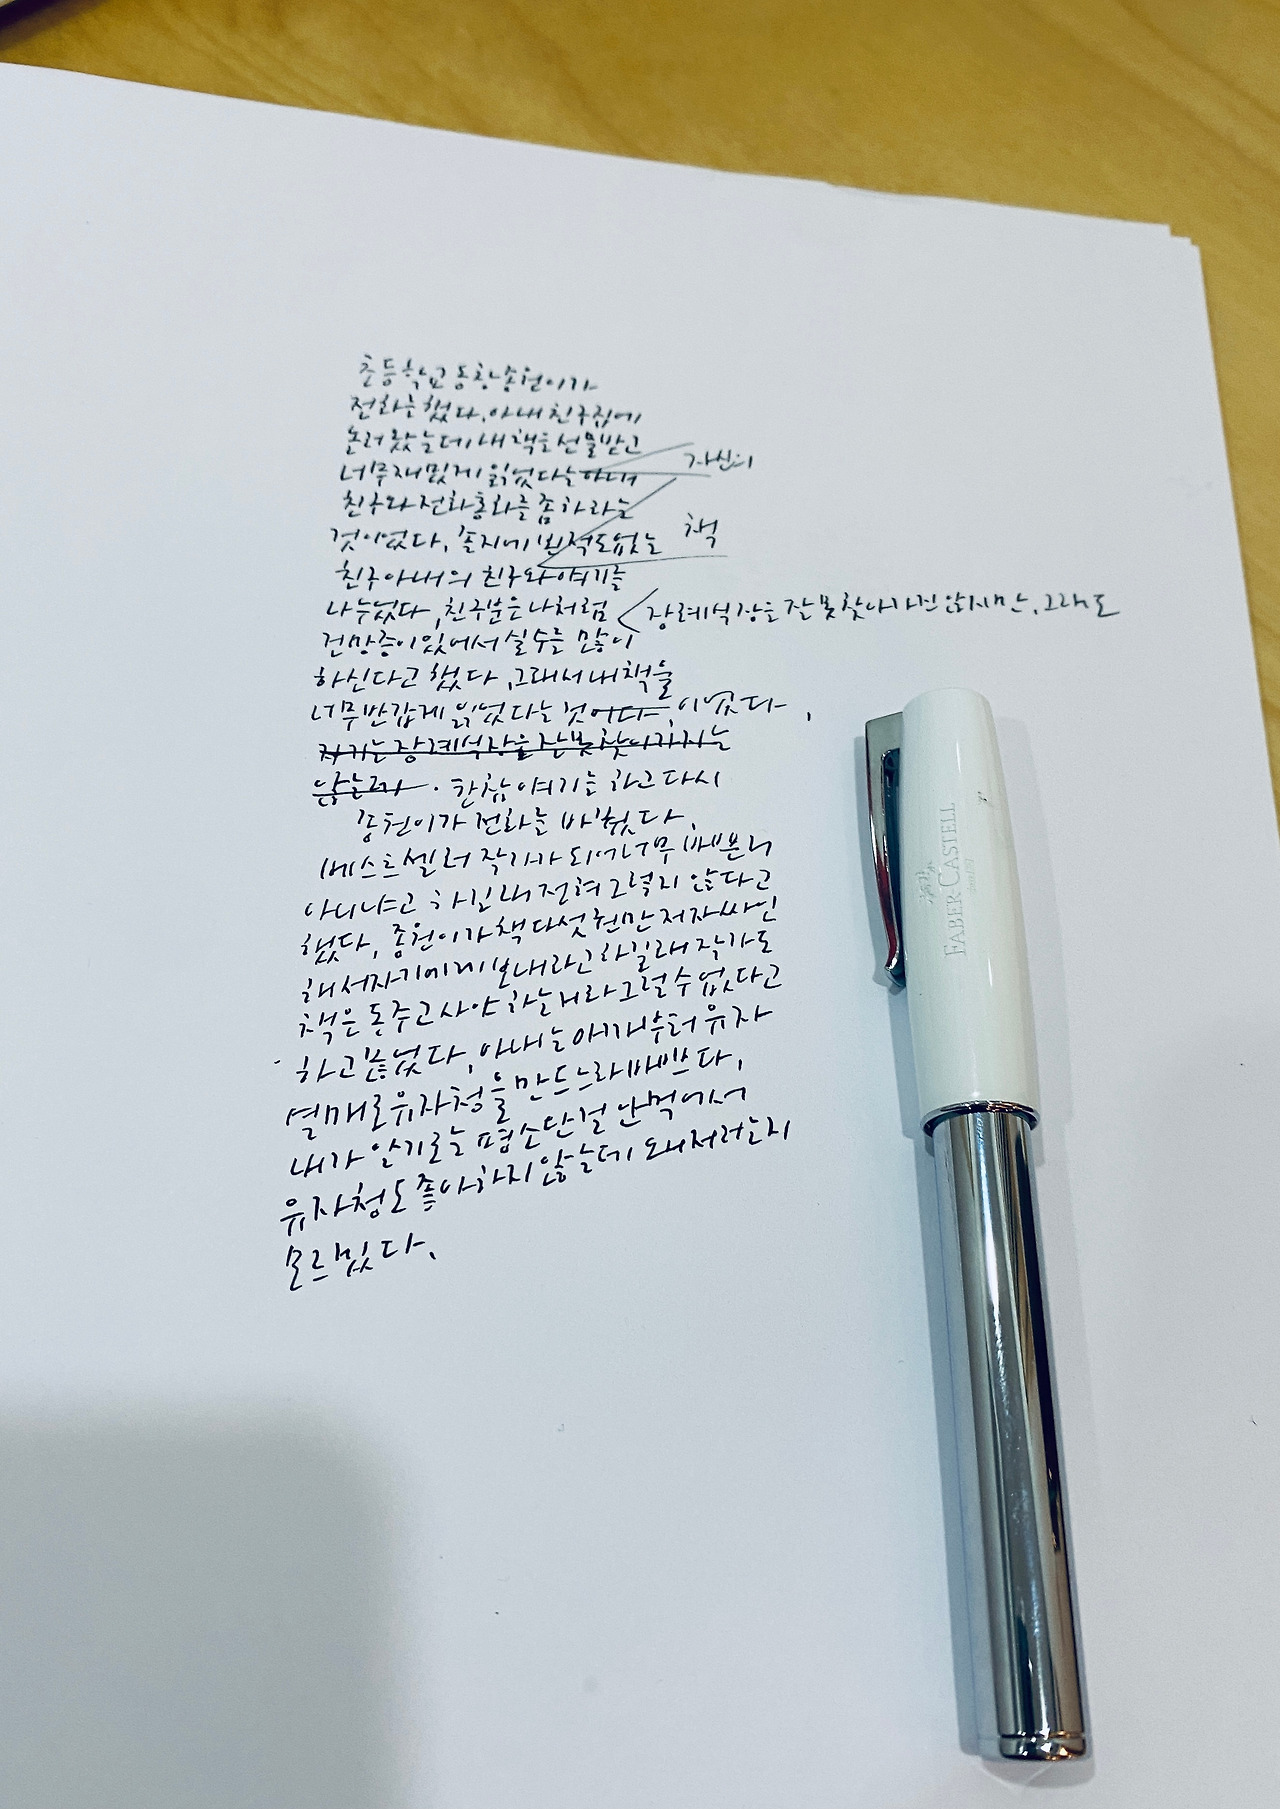 초등학교 동창 종원이가
전화를 했다. 아내 친구집에
놀러 왔는데 내 책을 선물받고
너무 재밌게 읽었다는 아내
자신의
친구와 전화통화를 좀 하라는
것이었다. 졸지에 본 적도 없는
책
친구 아내의 친구와 얘기를
나누었다. 친구분은 나처럼
장례식장을 잘못 찾아가진 않지만, 그래도
건망증이 있어서 실수를 많이
하신다고 했다. 그래서 내 책을
너무 반갑게 읽었다는 것이다. 이었다.
자기는 장례식장을 잘못 찾아가지는
않는다. 한참 얘기를 하고 다시
종원이가 전화를 바꿨다.
베스트셀러 작가가 되어 너무 바쁜 거
아니냐고 하길래 전혀 그렇지 않다고
했다. 종원이가 책 다섯 권만 저자 싸인
해서 자기에게 보내라고 하길래 작가도
책은 돈 주고 사야 하는 거라 그럴 수 없다고
하고 끊었다. 아내는 아까부터 유자
열매로 유자청을 만드느라 바쁘다.
내가 알기로는 평소 단 걸 안 먹어서
유자청도 좋아하지 않는데 왜 저러는지
모르겠다.
FABER-CASTELL